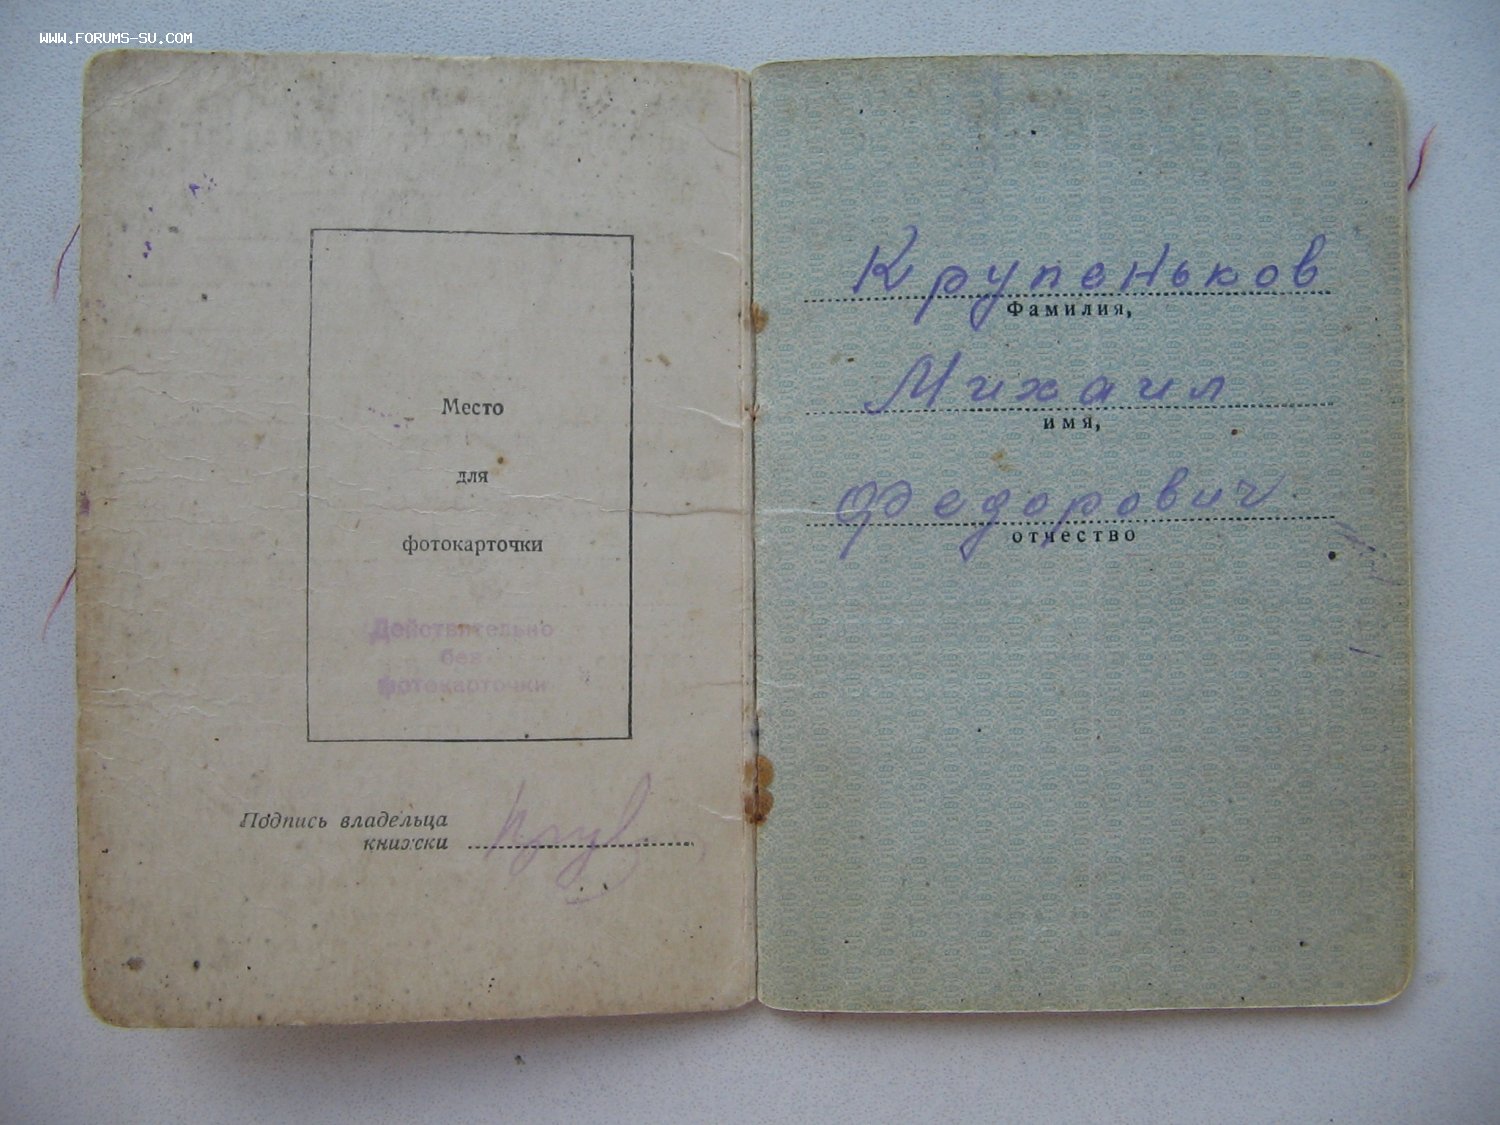 WWW.FORUMS-SU.COM
Место
для
фотокарточки
Действительно
без
фотокарточки
Подпись владельца
книжски
Крупеньков
Фамилия,
Михаил
имя,
Федорович
отчество